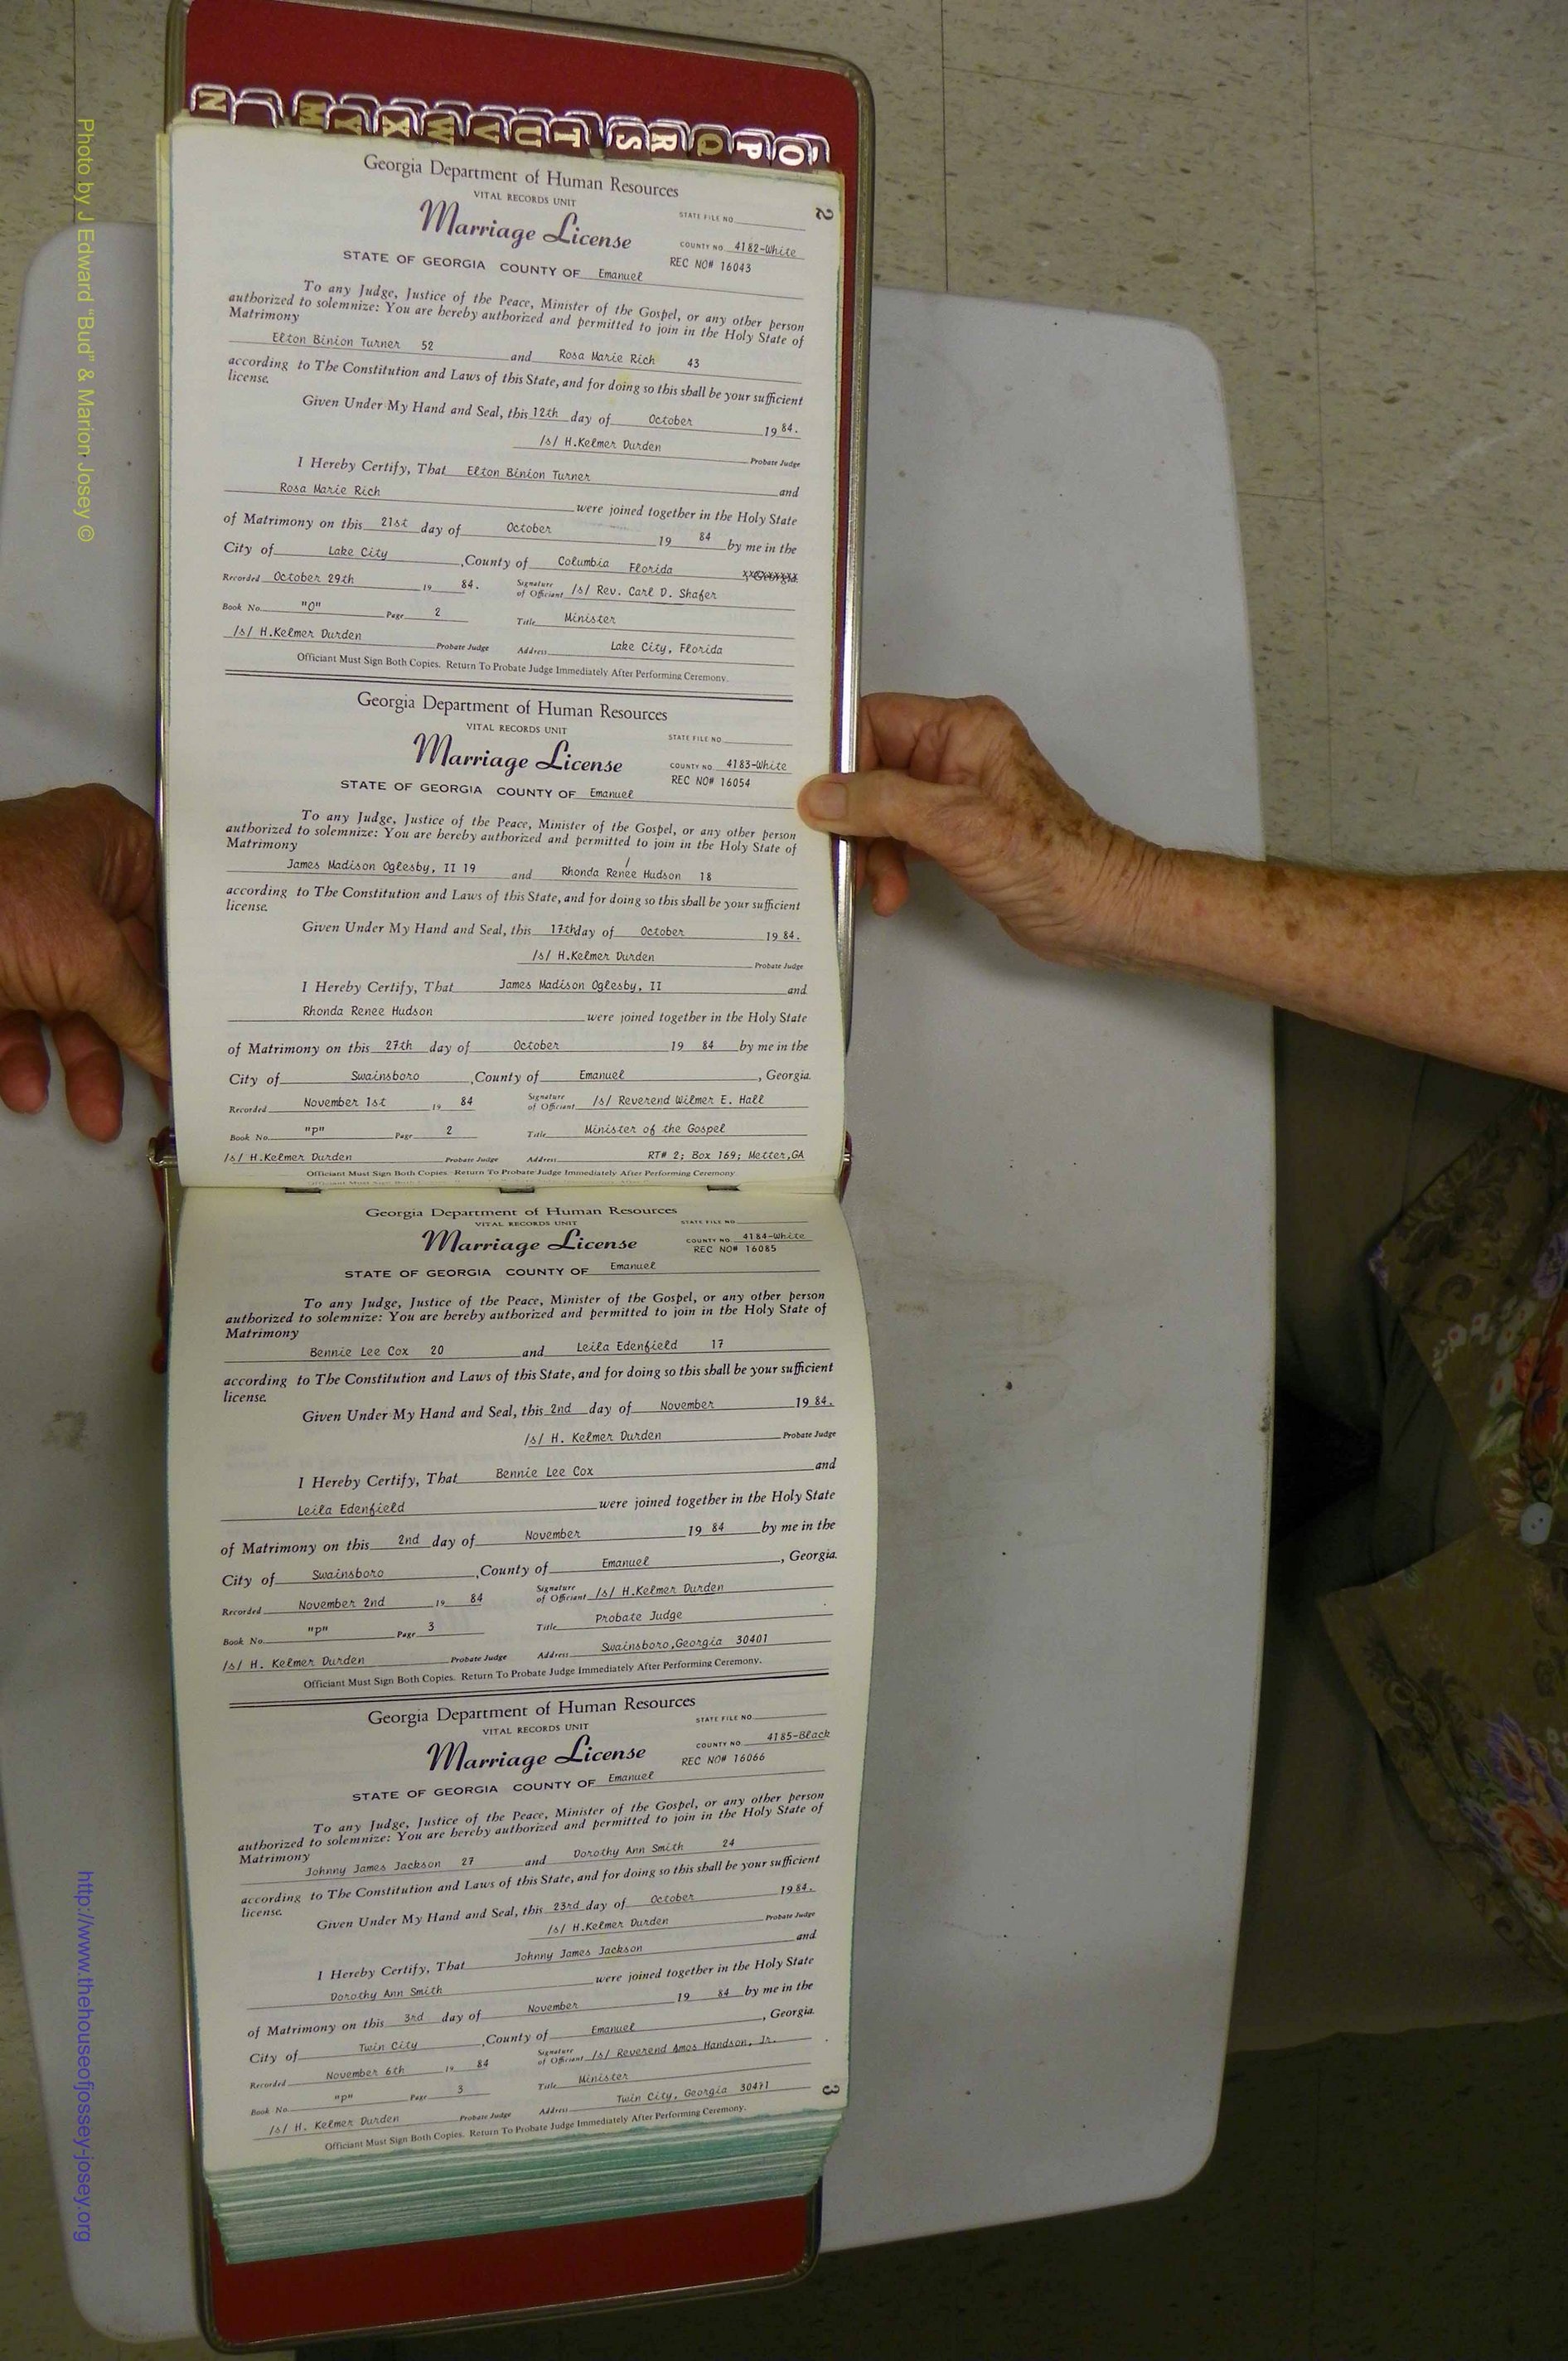 N M Y X W V U T S R Q P O
2
Georgia Department of Human Resources
VITAL RECORDS UNIT
STATE FILE NO.
Marriage License
COUNTY NO. 4182-White
REC NO# 16043
STATE OF GEORGIA COUNTY OF Emanuel
To any Judge, Justice of the Peace, Minister of the Gospel, or any other person
authorized to solemnize: You are hereby authorized and permitted to join in the Holy State of
Matrimony
Elton Binion Turner 52 and Rosa Marie Rich 43
according to The Constitution and Laws of this State, and for doing so this shall be your sufficient
license.
Given Under My Hand and Seal, this 12th day of October 19 84.
/s/ H.Kelmer Durden Probate Judge
I Hereby Certify, That Elton Binion Turner and
Rosa Marie Rich were joined together in the Holy State
of Matrimony on this 21st day of October 19 84 by me in the
City of Lake City, County of Columbia Florida , Georgia
Recorded October 29th 19 84. Signature of Officiant /s/ Rev. Carl D. Shafer
Book No. "O" Page 2 Title Minister
/s/ H.Kelmer Durden Probate Judge Address Lake City, Florida
Officiant Must Sign Both Copies. Return To Probate Judge Immediately After Performing Ceremony.
Georgia Department of Human Resources
VITAL RECORDS UNIT
STATE FILE NO.
Marriage License
COUNTY NO. 4183-White
REC NO# 16054
STATE OF GEORGIA COUNTY OF Emanuel
To any Judge, Justice of the Peace, Minister of the Gospel, or any other person
authorized to solemnize: You are hereby authorized and permitted to join in the Holy State of
Matrimony
James Madison Oglesby, II 19 and Rhonda Renée Hudson 18
according to The Constitution and Laws of this State, and for doing so this shall be your sufficient
license.
Given Under My Hand and Seal, this 17th day of October 19 84.
/s/ H.Kelmer Durden Probate Judge
I Hereby Certify, That James Madison Oglesby, II and
Rhonda Renee Hudson were joined together in the Holy State
of Matrimony on this 27th day of October 19 84 by me in the
City of Swainsboro, County of Emanuel, Georgia.
Recorded November 1st 19 84 Signature of Officiant /s/ Reverend Wilmer E. Hall
Book No. "P" Page 2 Title Minister of the Gospel
/s/ H.Kelmer Durden Probate Judge Address RT# 2; Box 169; Metter,GA
Officiant Must Sign Both Copies. Return To Probate Judge Immediately After Performing Ceremony.
Georgia Department of Human Resources
VITAL RECORDS UNIT
STATE FILE NO.
Marriage License
COUNTY NO. 4184-White
REC NO# 16085
STATE OF GEORGIA COUNTY OF Emanuel
To any Judge, Justice of the Peace, Minister of the Gospel, or any other person
authorized to solemnize: You are hereby authorized and permitted to join in the Holy State of
Matrimony
Bennie Lee Cox 20 and Leila Edenfield 17
according to The Constitution and Laws of this State, and for doing so this shall be your sufficient
license.
Given Under My Hand and Seal, this 2nd day of November 19 84.
/s/ H. Kelmer Durden Probate Judge
I Hereby Certify, That Bennie Lee Cox and
Leila Edenfield were joined together in the Holy State
of Matrimony on this 2nd day of November 19 84 by me in the
City of Swainsboro, County of Emanuel, Georgia.
Recorded November 2nd 19 84 Signature of Officiant /s/ H.Kelmer Durden
Book No. "P" Page 3 Title Probate Judge
/s/ H. Kelmer Durden Probate Judge Address Swainsboro,Georgia 30401
Officiant Must Sign Both Copies. Return To Probate Judge Immediately After Performing Ceremony.
Georgia Department of Human Resources
VITAL RECORDS UNIT
STATE FILE NO.
Marriage License
COUNTY NO. 4185-Black
REC NO# 16066
STATE OF GEORGIA COUNTY OF Emanuel
To any Judge, Justice of the Peace, Minister of the Gospel, or any other person
authorized to solemnize: You are hereby authorized and permitted to join in the Holy State of
Matrimony
Johnny James Jackson 27 and Dorothy Ann Smith 24
according to The Constitution and Laws of this State, and for doing so this shall be your sufficient
license.
Given Under My Hand and Seal, this 23rd day of October 19 84.
/s/ H.Kelmer Durden Probate Judge
I Hereby Certify, That Johnny James Jackson and
Dorothy Ann Smith were joined together in the Holy State
of Matrimony on this 3rd day of November 19 84 by me in the
City of Twin City, County of Emanuel, Georgia.
Recorded November 6th 19 84 Signature of Officiant /s/ Reverend Amos Handson, Jr.
Book No. "P" Page 3 Title Minister
/s/ H. Kelmer Durden Probate Judge Address Twin City, Georgia 30471
Officiant Must Sign Both Copies. Return To Probate Judge Immediately After Performing Ceremony.
3
Photo by J Edward "Bud" & Marion Josey ©
http://www.thehouseofjossey-josey.org